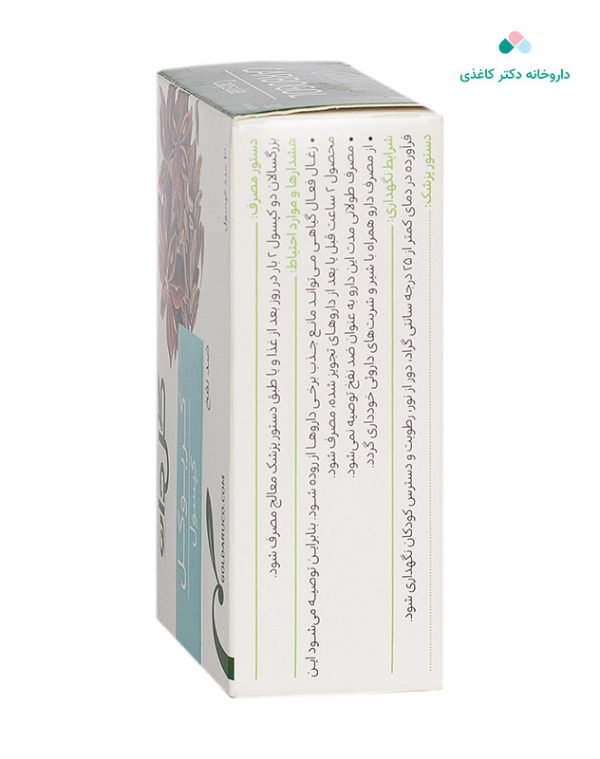 داروخانه دکتر کاغذی
CARBOGOL
ضد نفخ
گل دارو
کربوگل
کپسول
GOLDARUCO.COM
دستور مصرف:
بزرگسالان دو کپسول ۲ بار در روز بعد از غذا و یا طبق دستور پزشک معالج مصرف شود.
هشدارها و موارد احتیاط:
• زغال فعال گیاهی می‌تواند مانع جذب برخی داروها از روده شود. بنابراین توصیه می‌شود این
محصول ۲ ساعت قبل یا بعد از داروهای تجویز شده، مصرف شود.
• مصرف طولانی مدت این دارو به عنوان ضد نفخ توصیه نمی‌شود.
• از مصرف دارو همراه با شیر و شربت‌های داروئی خودداری گردد.
شرایط نگهداری:
فرآورده در دمای کمتر از ۲۵ درجه سانتی گراد، دور از نور، رطوبت و دسترس کودکان نگهداری شود.
دستور پزشک: